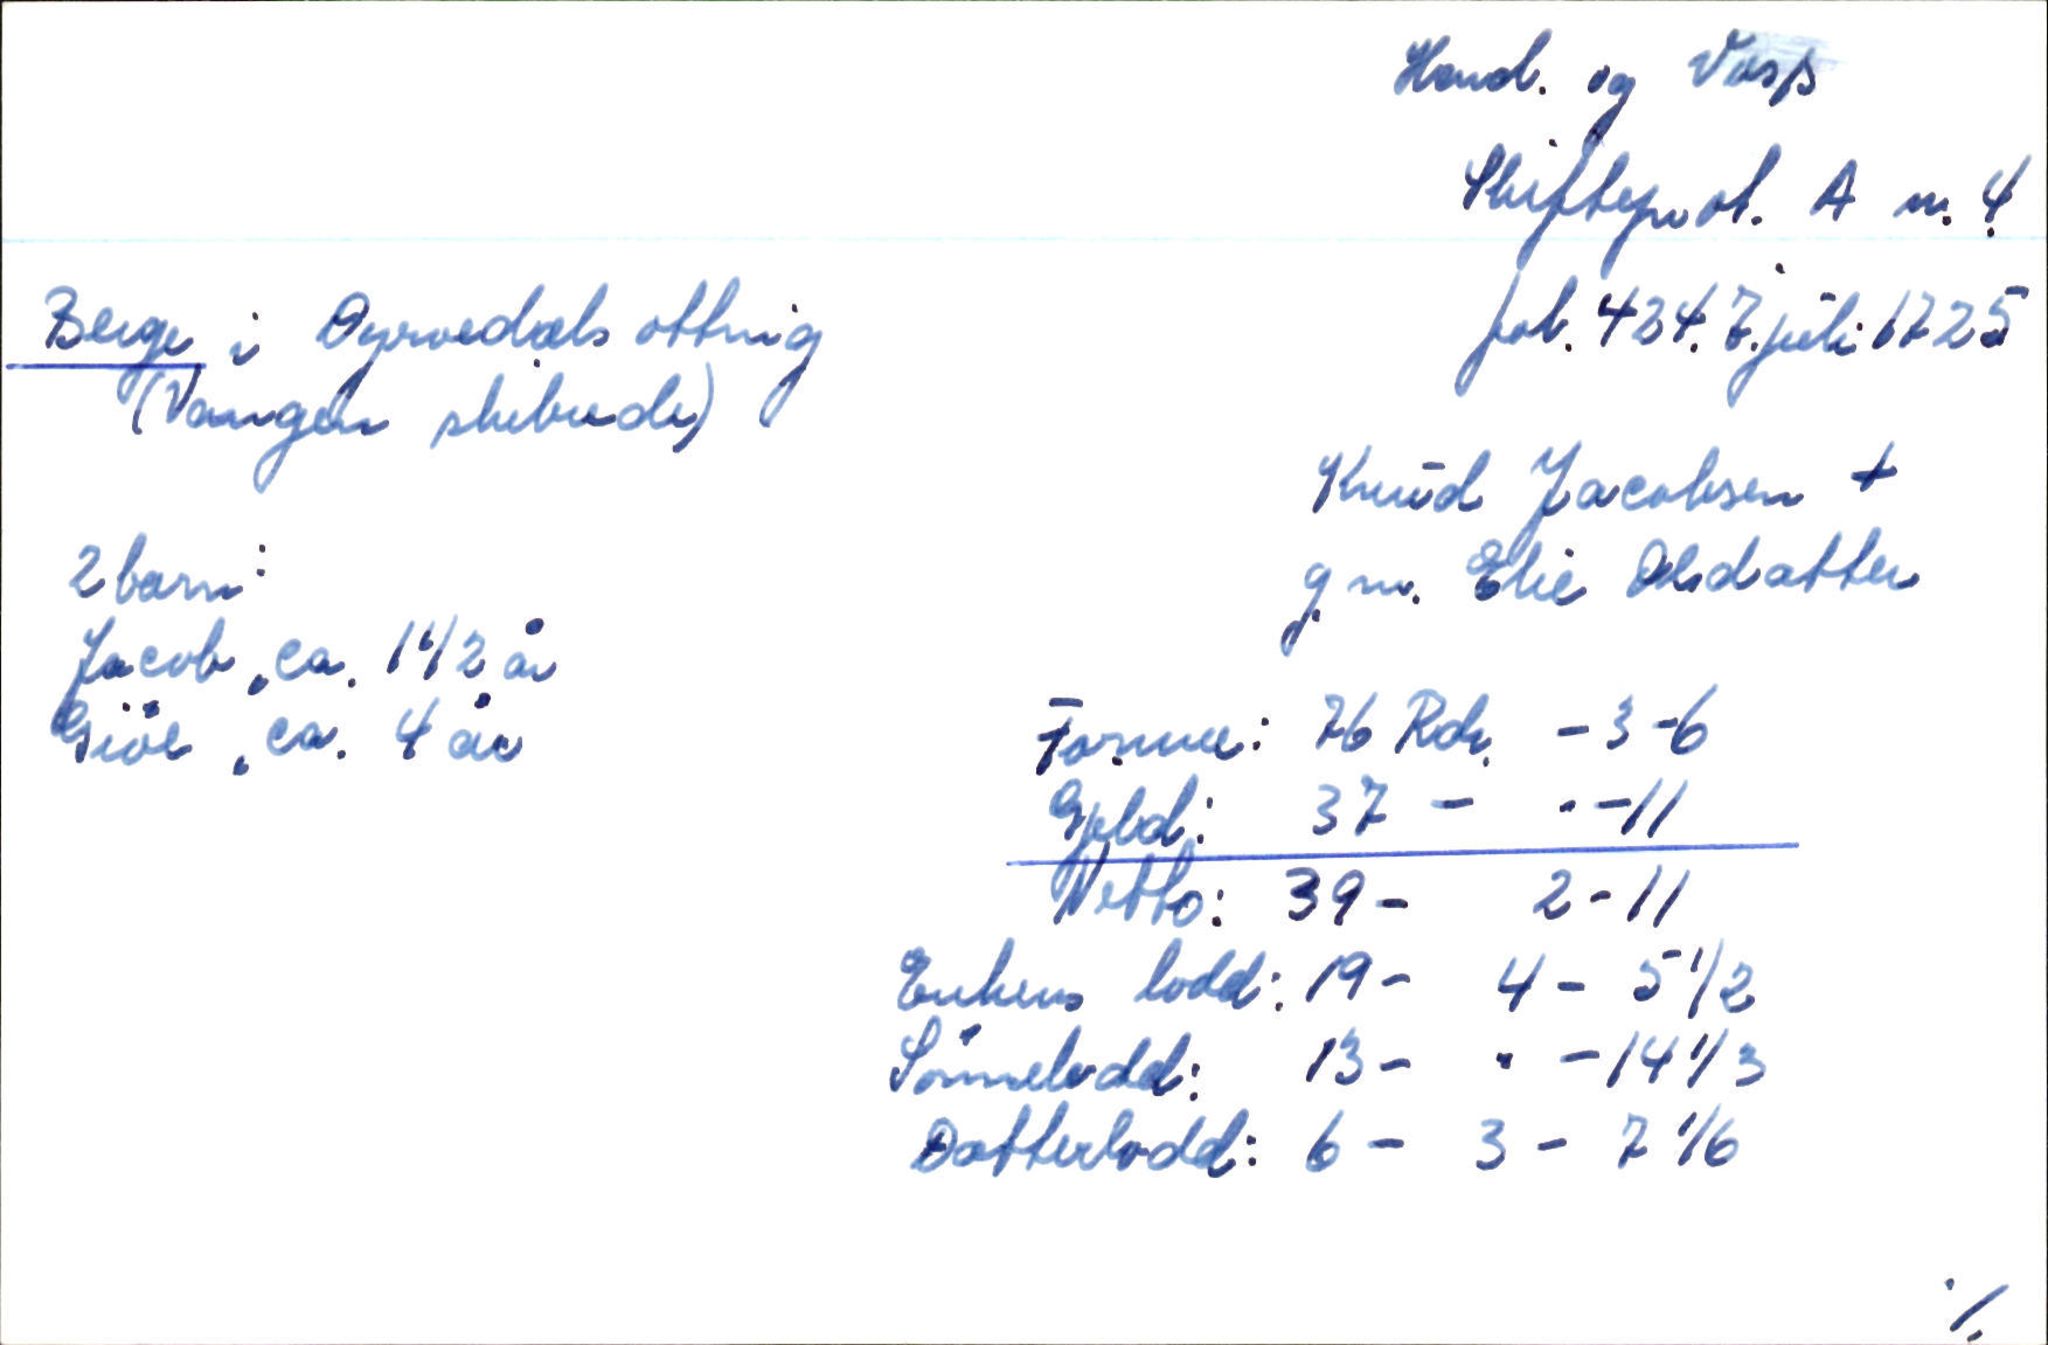 Hard. og Voss
Skifteprot. A nr. 4
fol. 424. 7. juli 1725
Berge i Dyrvedals ottnig
(Vangen skibrede)
Knud Jacobsen +
g.m. Elie Olsdatter
2 barn:
Jacob, ca. 1 1/2 år
Giöe, ca. 4 år
Formue: 76 Rdr. - 3 - 6
Gjeld: 37 - . - 11
Netto: 39 - 2 - 11
Enkens lodd: 19 - 4 - 5 1/2
Sønnelodd: 13 - . - 14 1/3
Datterlodd: 6 - 3 - 7 1/6
./.